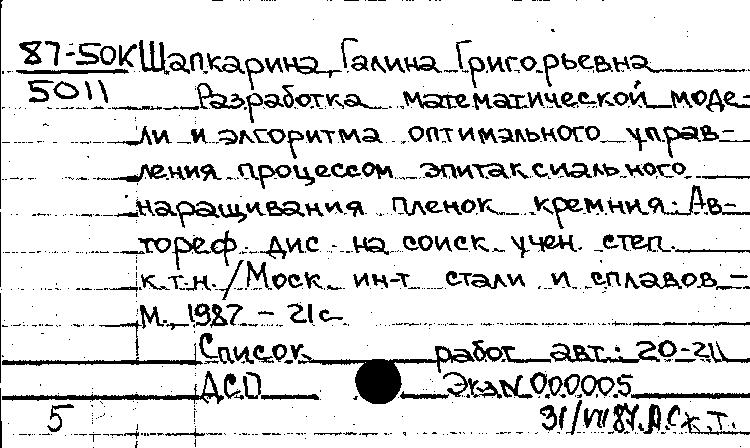 87-50К Шапкарина, Галина Григорьевна
5011 Разработка математической моде-
ли и элгоритма оптимального управ-
ления процессом эпитаксиального
наращивания пленок кремния: Ав-
тореф. дис. на соиск. учен. степ.
к.т.н. / Моск. ин-т стали и сплавов -
М., 1987 - 21с
Список работ авт.: 20-21
ДСП Экз N 000005
5 31/VII 87. К.Т.